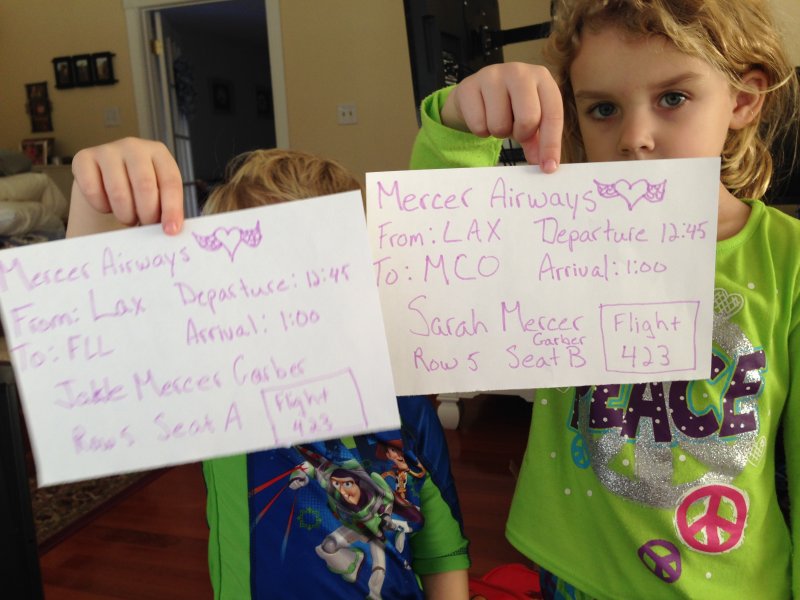 Mercer Airways
From: Lax Departure: 12:45
To: FLL Arrival: 1:00
Mercer Garber
Row 5 Seat A
Flight
423
Mercer Airways
From: LAX Departure 12:45
To: MCO Arrival: 1:00
Sarah Mercer
Garber
Row 5 Seat B
Flight
423
PEACE